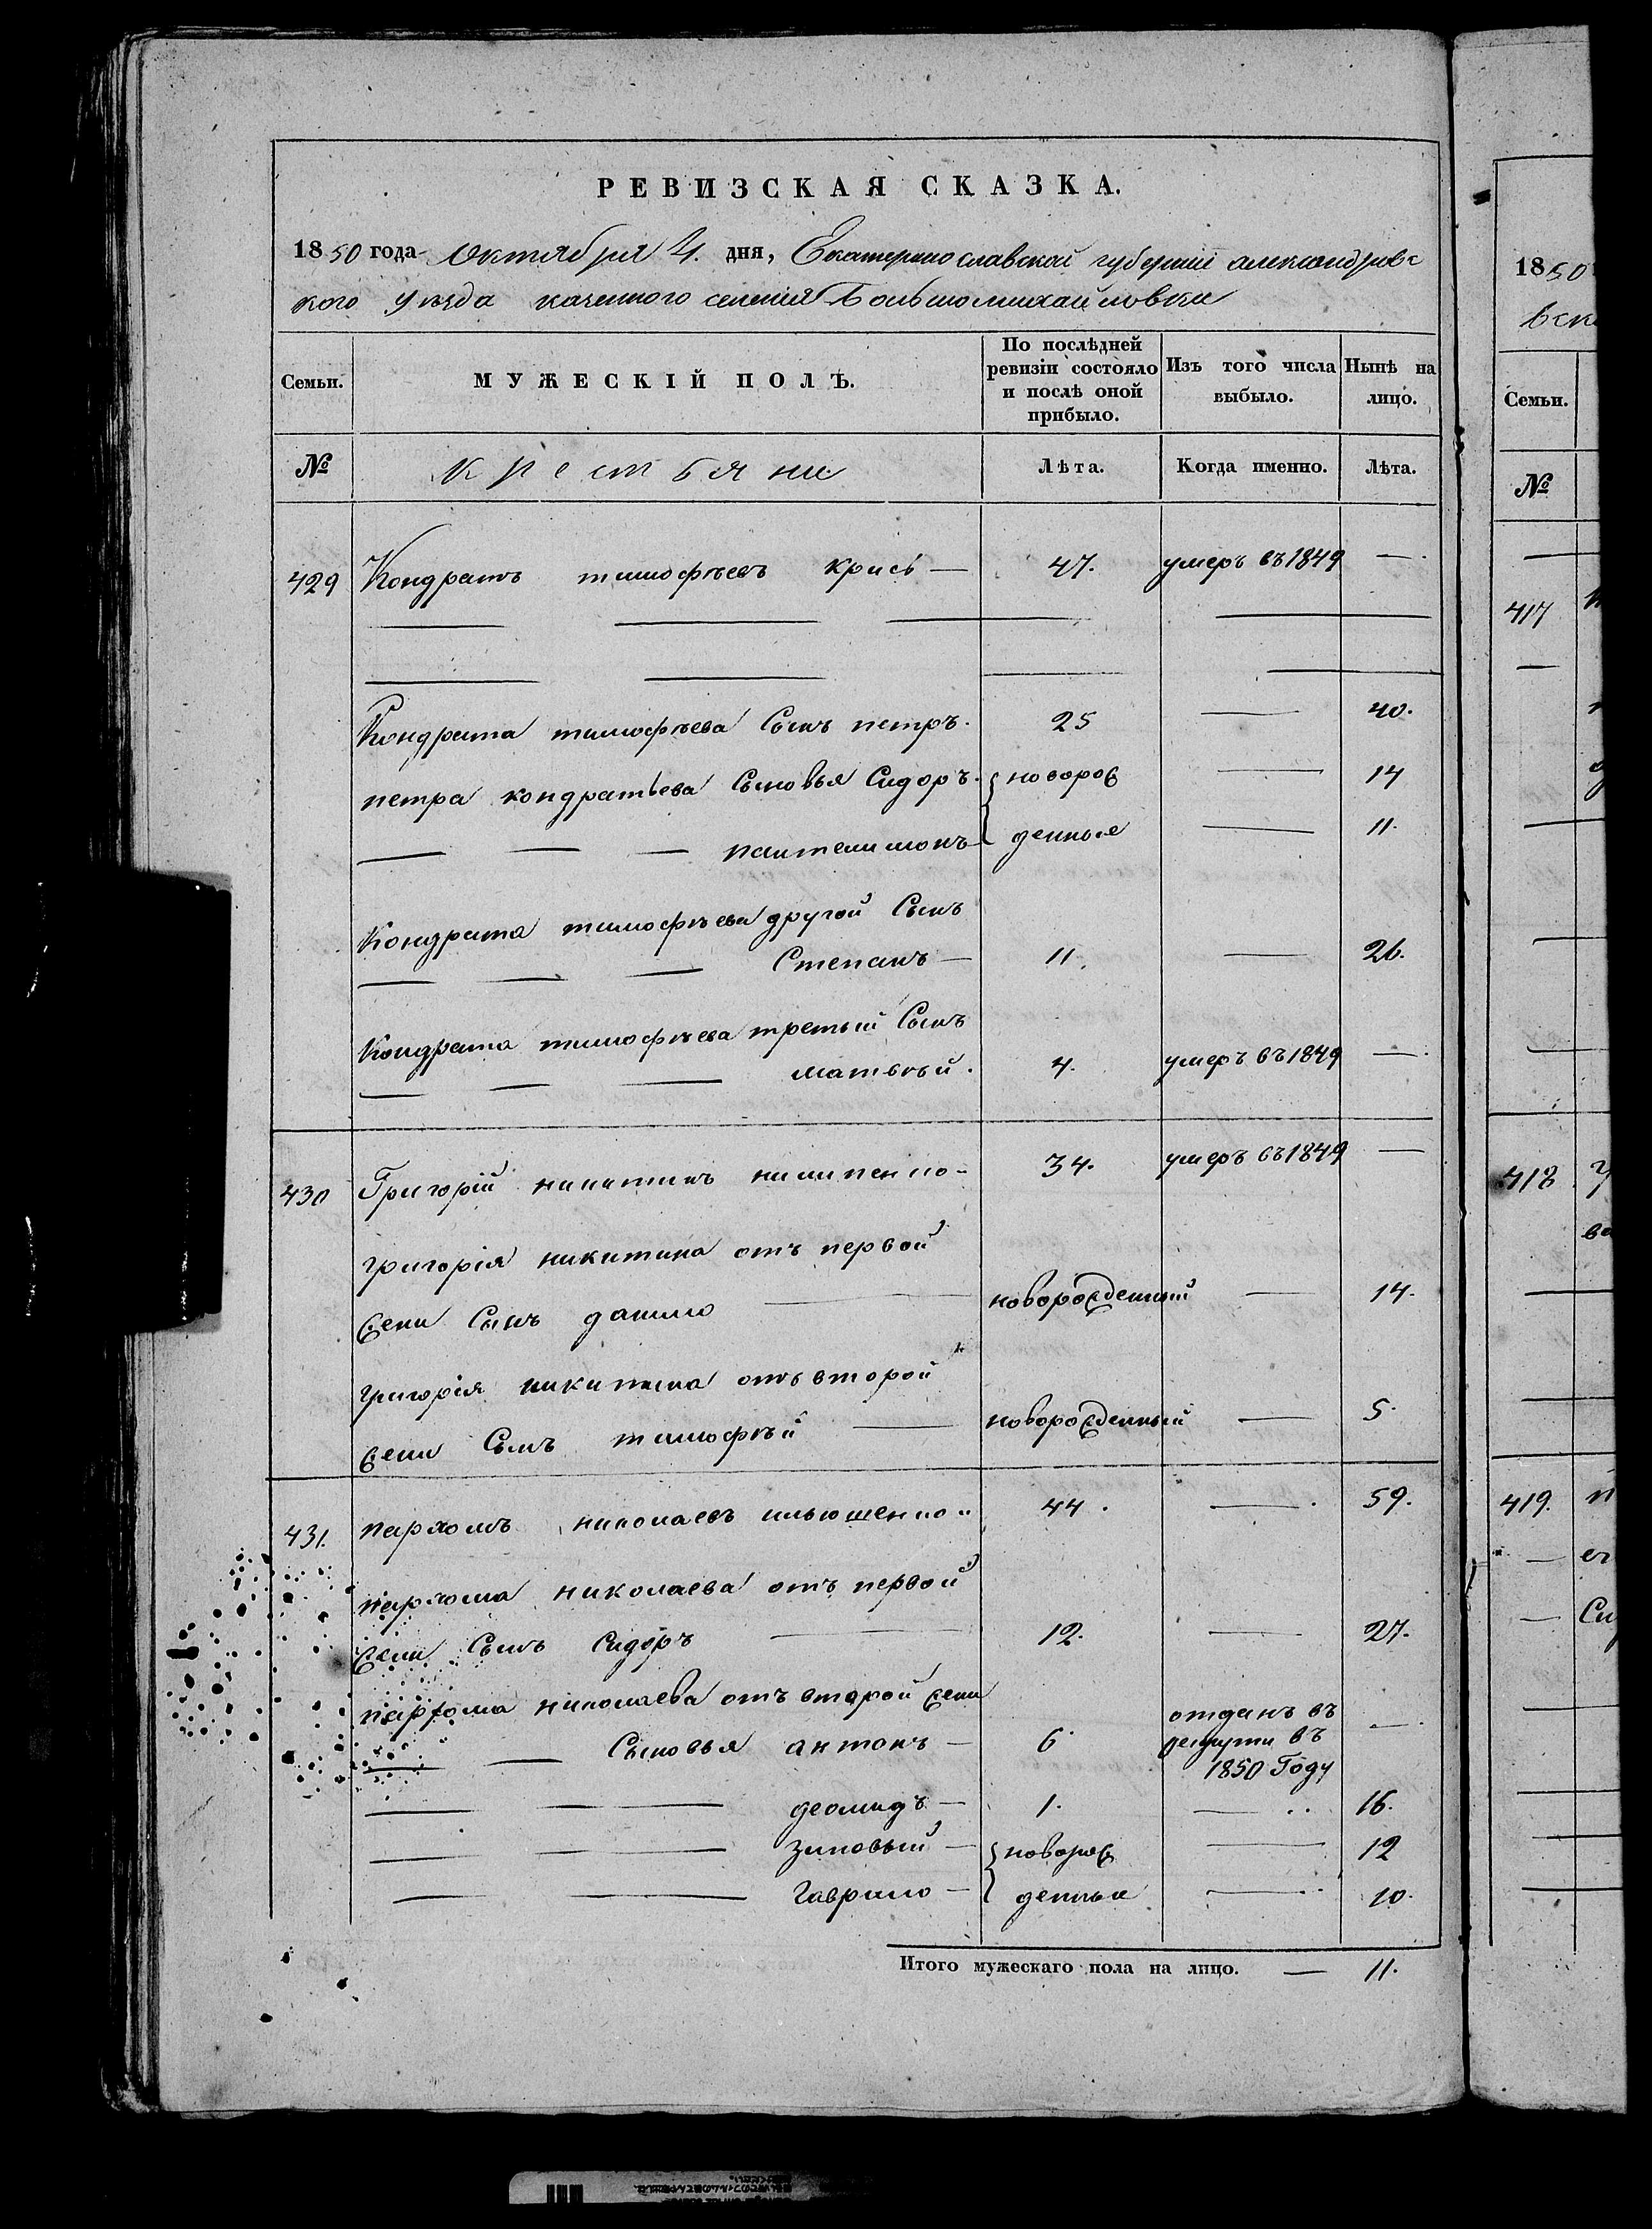 РЕВИЗСКАЯ СКАЗКА.
1850 года Октября 4. дня, Екатеринославской губернии александровс
кого уезда казенного селения Большомихайловки
Семьи. МУЖЕСКІЙ ПОЛЪ. По послѣдней ревизіи состояло и послѣ оной прибыло. Изъ того числа выбыло. Нынѣ на лицо.
№ крестьяне Лѣта. Когда именно. Лѣта.
429 Кондратъ тимофѣевъ Крисъ — 47. умеръ въ 1849 —
Кондрата тимофѣева Сынъ петръ. 25 — 40.
петра кондратьева Сыновья Сидоръ новорож — 14
— — — пантелимонъ денные — 11.
Кондрата тимофѣева другой Сынъ
— — — Степанъ — 11. — 26.
Кондрата тимофѣева третьий Сынъ
— — — матвѣй. 4. умеръ въ 1849 —
430 Григорій никитинъ 34. умеръ въ 1849 —
григорія никитина отъ первой
жени Сынъ данило — новорожденный — 14.
григорія никитина отъ второй
жени Сынъ тимофѣй — новорожденный — 5.
431. пархомъ николаевъ ильюшенко 44. — 59.
пархома николаева отъ первой
жени Сынъ Сидоръ — 12. — 27.
пархома николаева отъ второй жени
— — Сыновья антонъ — 6. отданъ въ рекруты въ 1850 Году —
— — — деомидъ — 1. — 16.
— — — Зиновый — новорож — 12
— — — Гаврило — денные — 10.
Итого мужескаго пола на лицо. — 11.
1850
Семьи.
№
417
418
419.